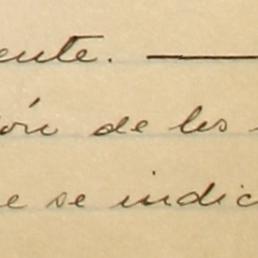 ente. ——
ión de los
e se indic